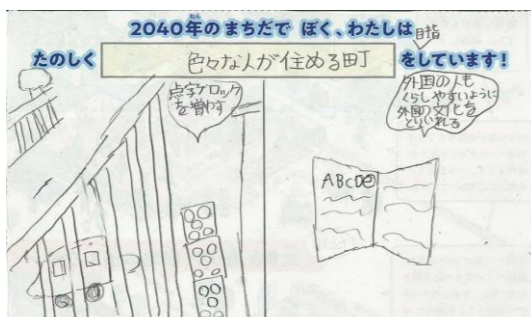 2040年のまちだで ぼく、わたしは
目指
たのしく 色々な人が住める町 をしています!
点字ブロック
を増やす
外国の人も
くらしやすいように
外国の文化を
とりいれる
ABCDE